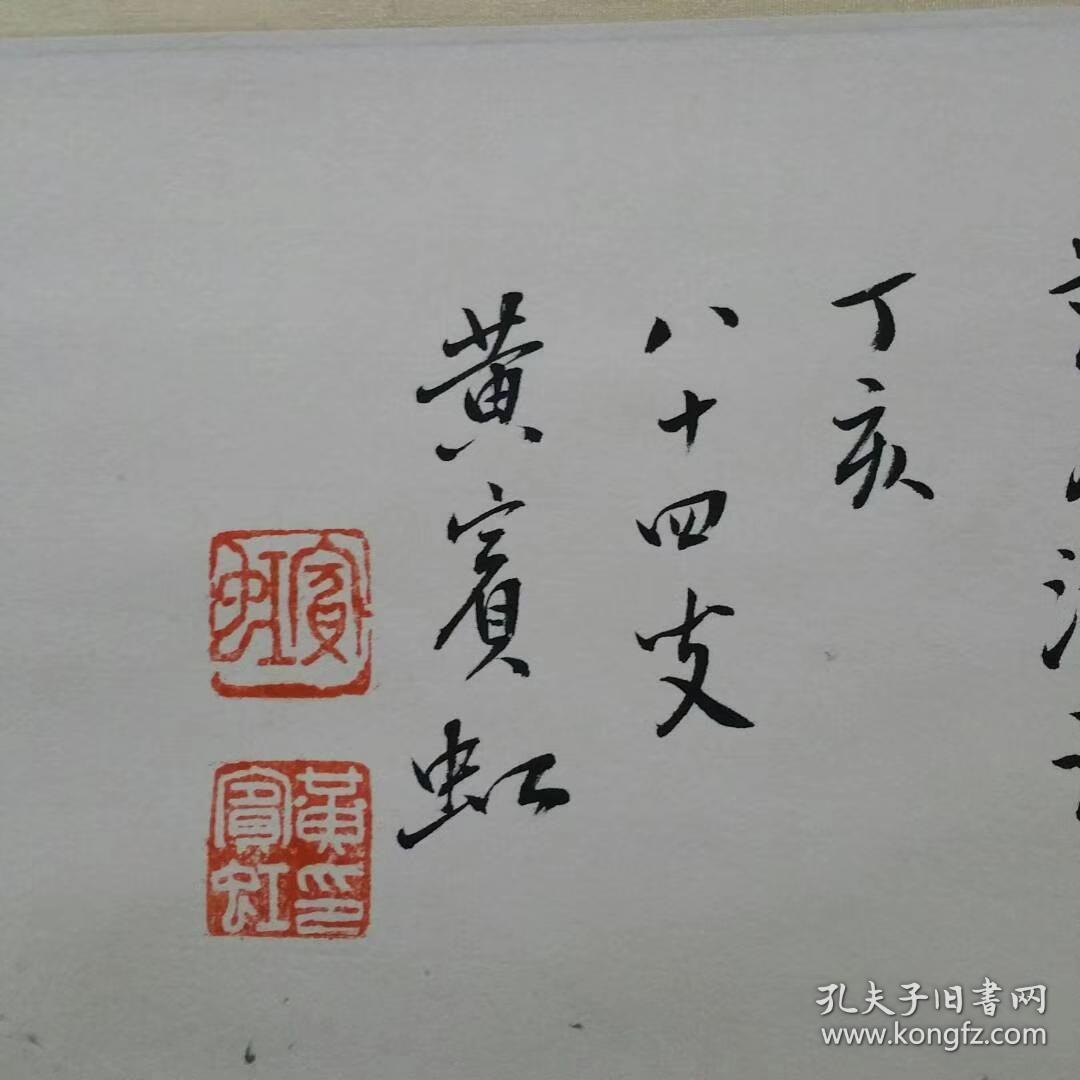 丁亥
八十四支
黄賓虹
賓虹
黃賓虹印
孔夫子旧書网
www.kongfz.com